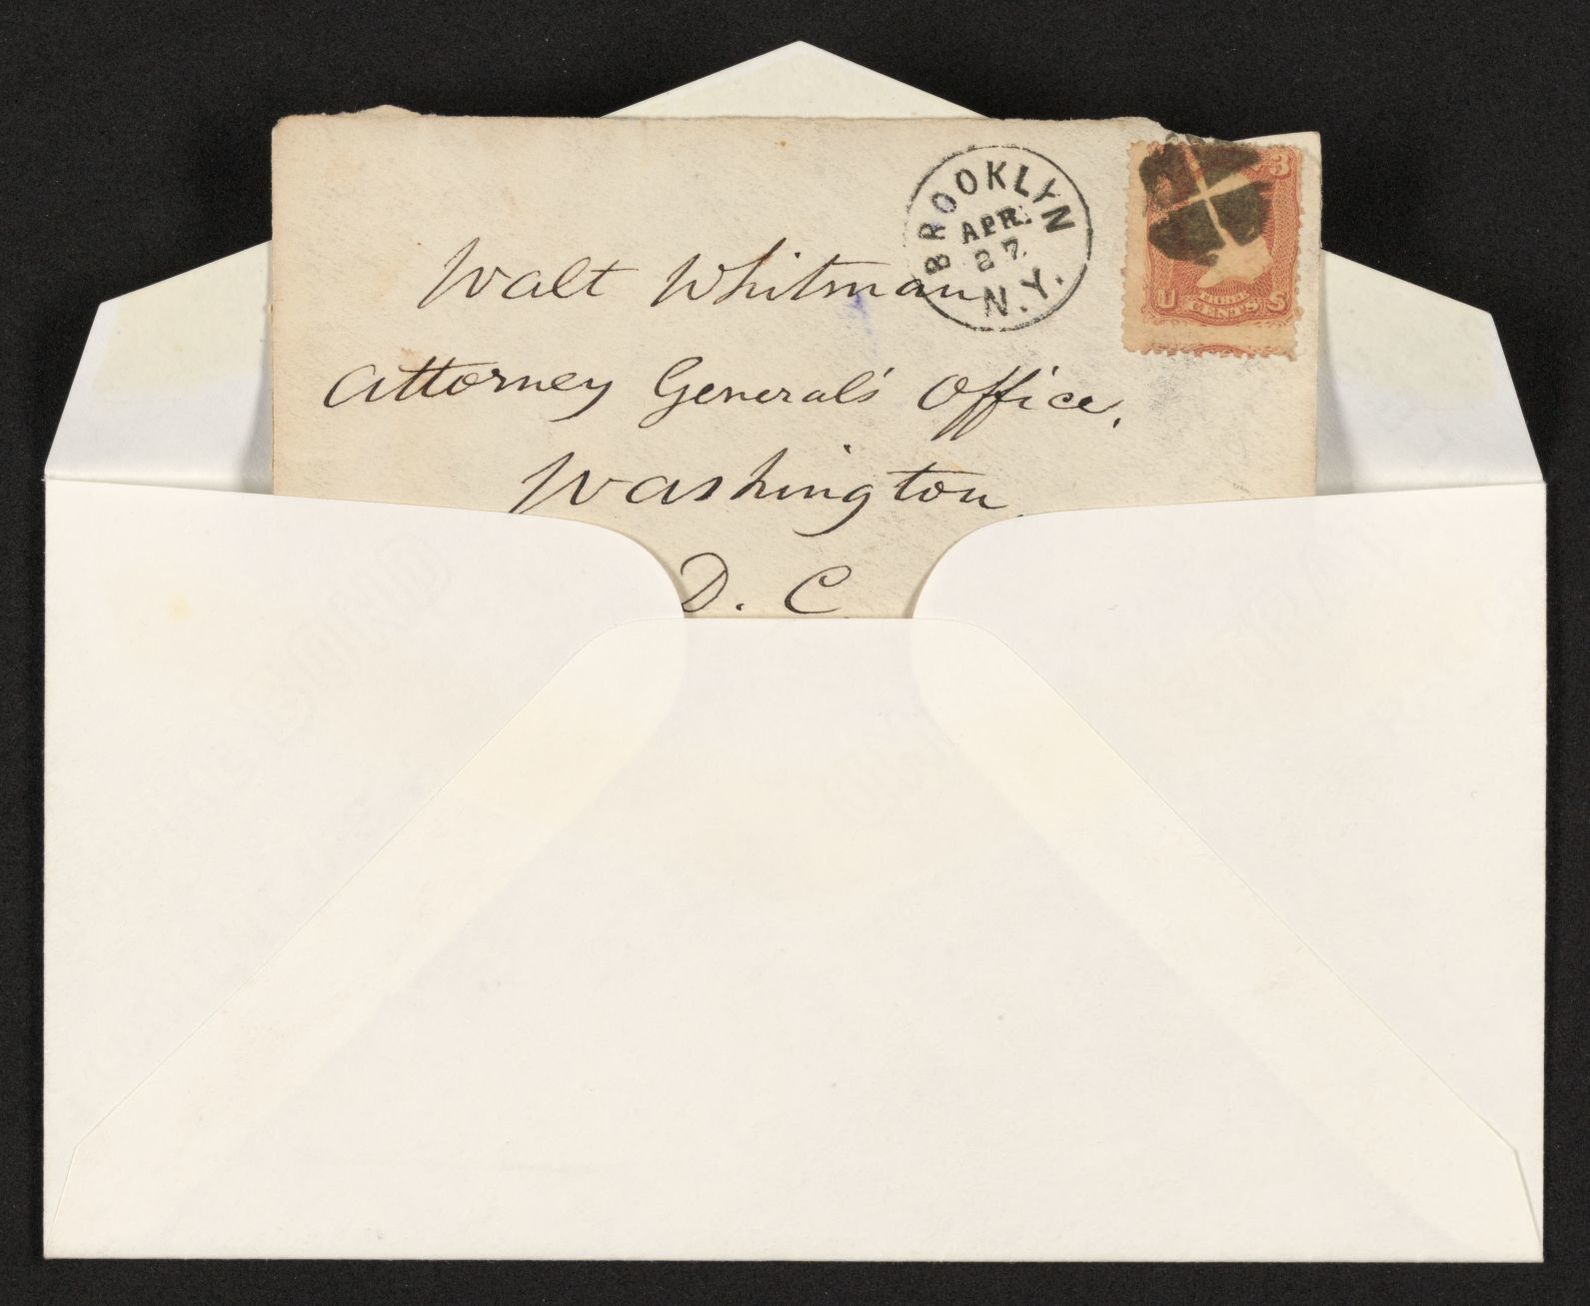 BROOKLYN
APR.
27
N.Y.
3
U THREE CENTS S
Walt Whitman
Attorney General's Office,
Washington,
D. C